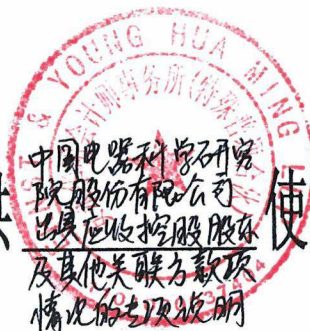 YOUNG HUA MING
会计师事务所(特殊普通合伙)
中国电器科学研究
院股份有限公司
出具应收控股股东
及其他关联方款项
情况的专项说明
使